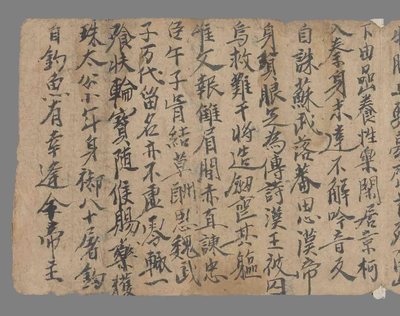 下由巢養性樂閑居京柯
入秦身未達不解吟音又
自誅蘇武落蕃思漢帝
身質眼是為傳詩漢王被囚
烏救難干將造劍喪其軀
惟父報讎眉間赤直諫忠
臣午子胥結草酬恩魏武
子万代留名亦不虛零輒一
飡扶輪寶隨侯賜藥獲
珠太公少年身御八十屠釣
自釣魚有幸逢今帝主